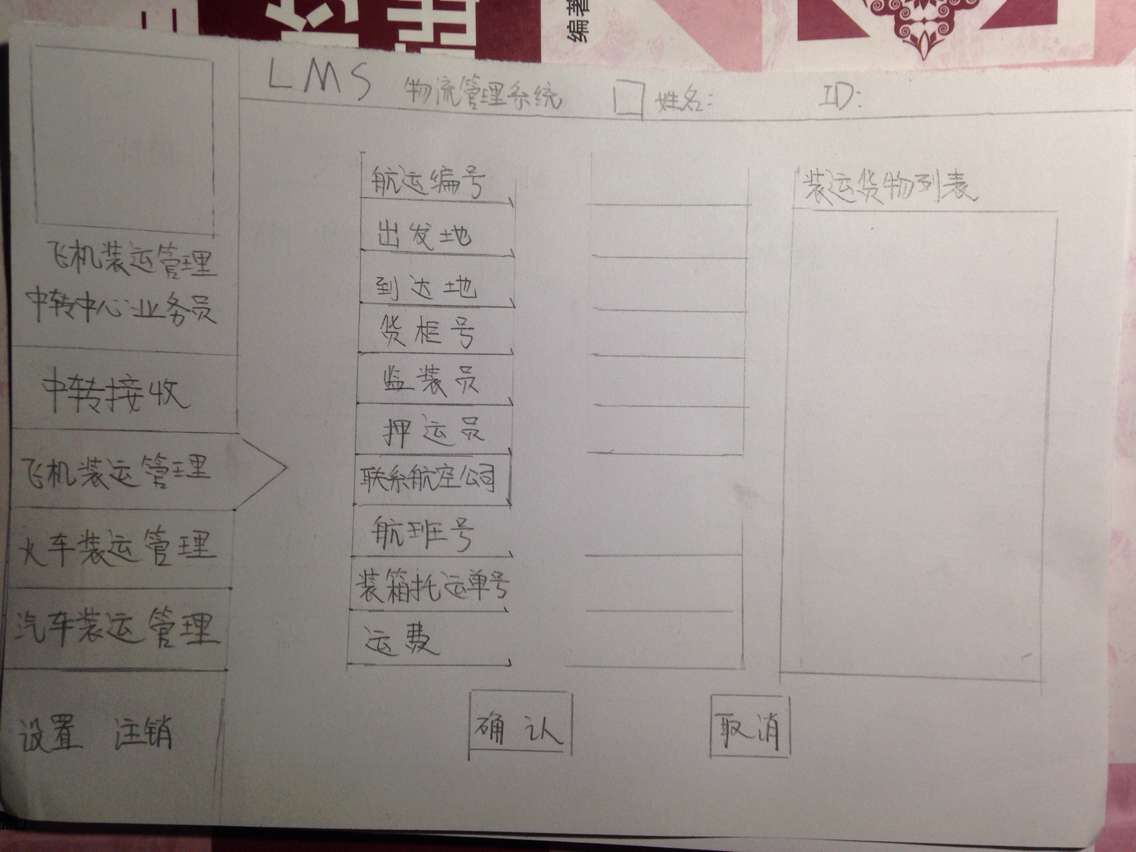 编著
LMS 物流管理系统 姓名: ID:
飞机装运管理
中转中心业务员
中转接收
飞机装运管理
火车装运管理
汽车装运管理
设置 注销
航运编号
出发地
到达地
货柜号
监装员
押运员
联系航空公司
航班号
装箱托运单号
运费
装运货物列表
确认
取消